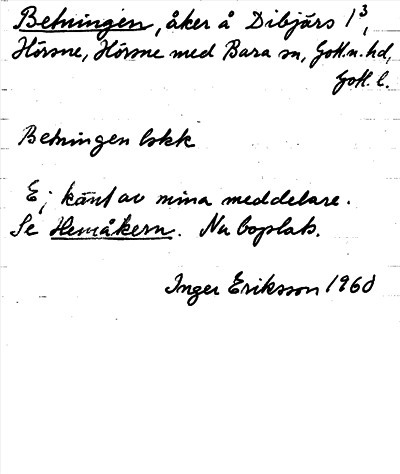 Betningen, åker å Dibjärs 1³,
Hörsne, Hörsne med Bara sn, Gotl. n. hd,
Gotl. l.
Betningen lskk
Ej känt av mina meddelare.
Se Hemåkern. Nu boplats.
Inger Eriksson 1960